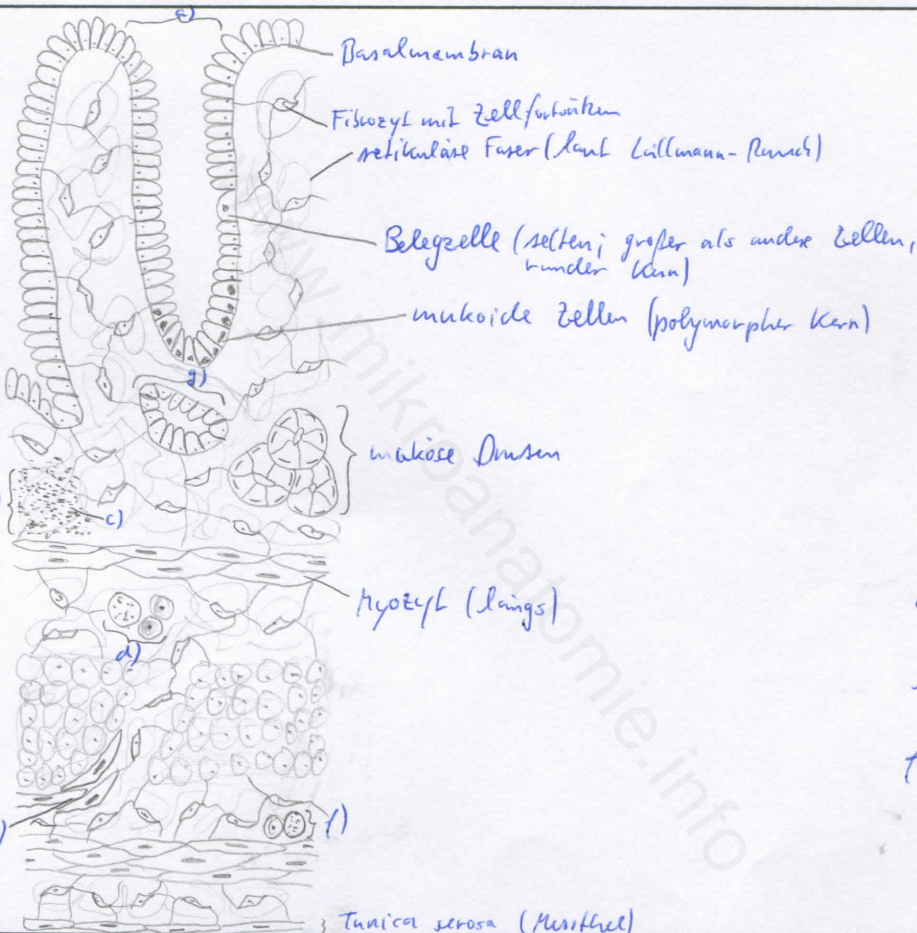 e)
Basalmembran
Fibrozyt mit Zellfortsätzen
retikuläre Faser (laut Lüllmann-Rauch)
Belegzelle (selten; größer als andere Zellen,
runder Kern)
mukoide Zellen (polymorpher Kern)
g)
muköse Drüsen
c)
Myozyt (längs)
d)
f)
Tunica serosa (Mesothel)
www.mikroanatomie.info